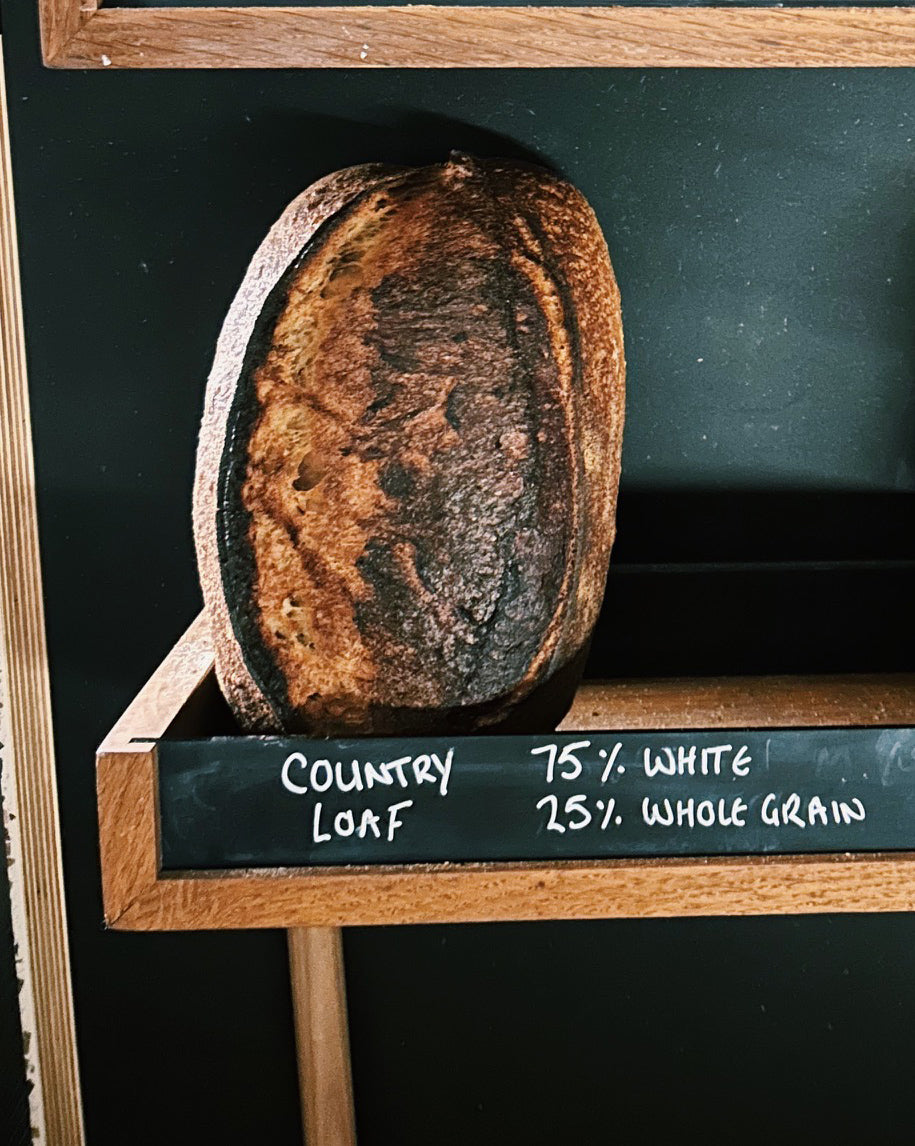 COUNTRY 75% WHITE
LOAF 25% WHOLE GRAIN